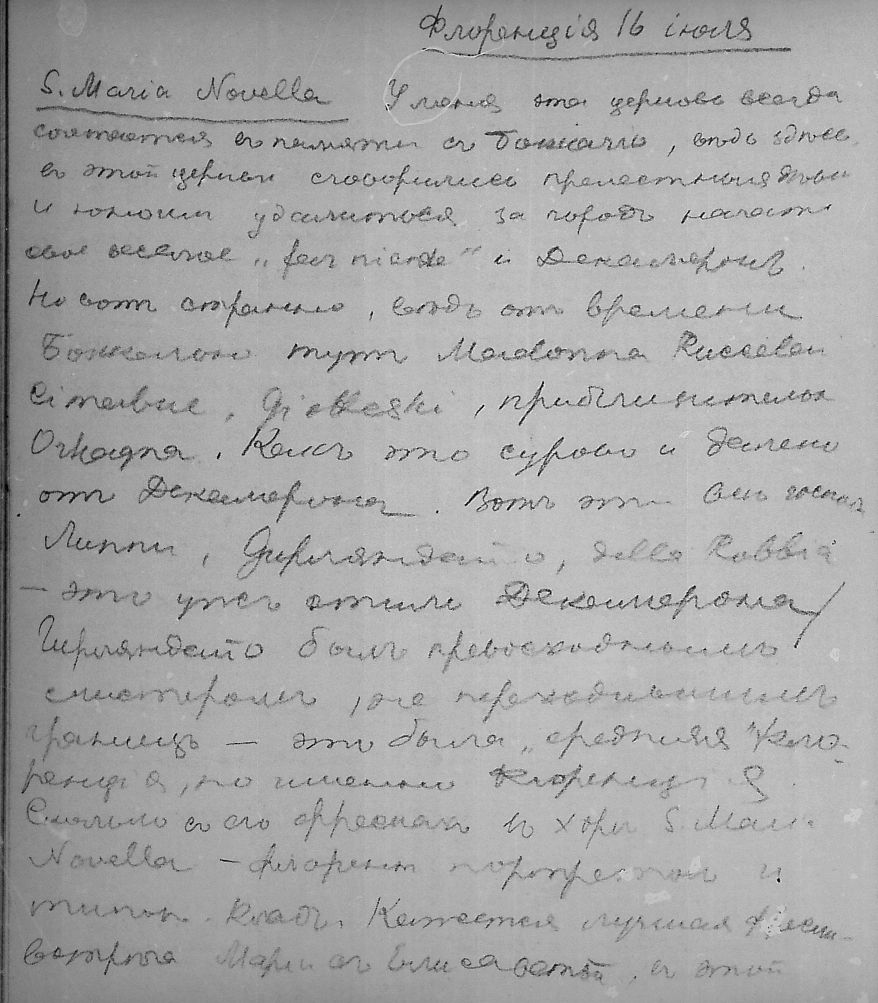 Флоренція 16 іюля
S. Maria Novella У меня эта церковь всегда
сочетается въ памяти съ Боккачіо, ведь здесь
въ этой церкви сговорились прелестныя девы
и юноши удалиться за городъ начать
свое веселое „far niente“ и Декамеронъ.
Но вотъ странно, ведь отъ времени
Боккачіо тутъ Madonna Ruccelai
Cimabue, Giotteski, приблизительно
Orkagna. Какъ это сурово и далеко
отъ Декамерона. Вотъ эти
Липпи, Гирляндайо, della Robbia
— это ужъ стиль Декамерона/
Гирляндайо былъ превосходнымъ
мастеромъ, не переходившимъ
границъ — это была „средняя“ Фло-
ренція, но именно Флоренція.
Сколько въ его фрескахъ въ хоре S. Maria
Novella — флорент портретовъ и
типовъ. Кажется лучшая фреска
встреча Маріи съ Елисаветой, въ этой